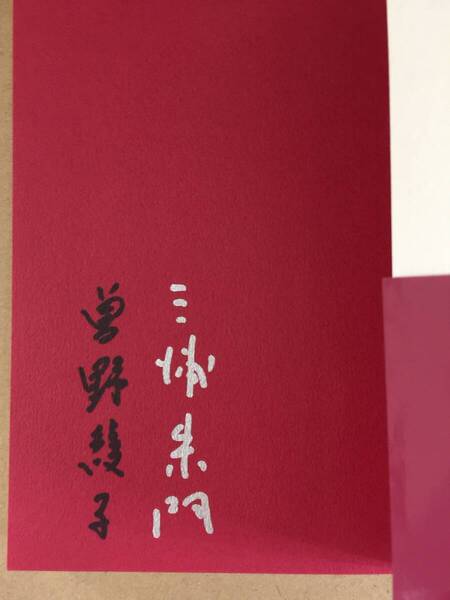 三浦朱門
曽野綾子